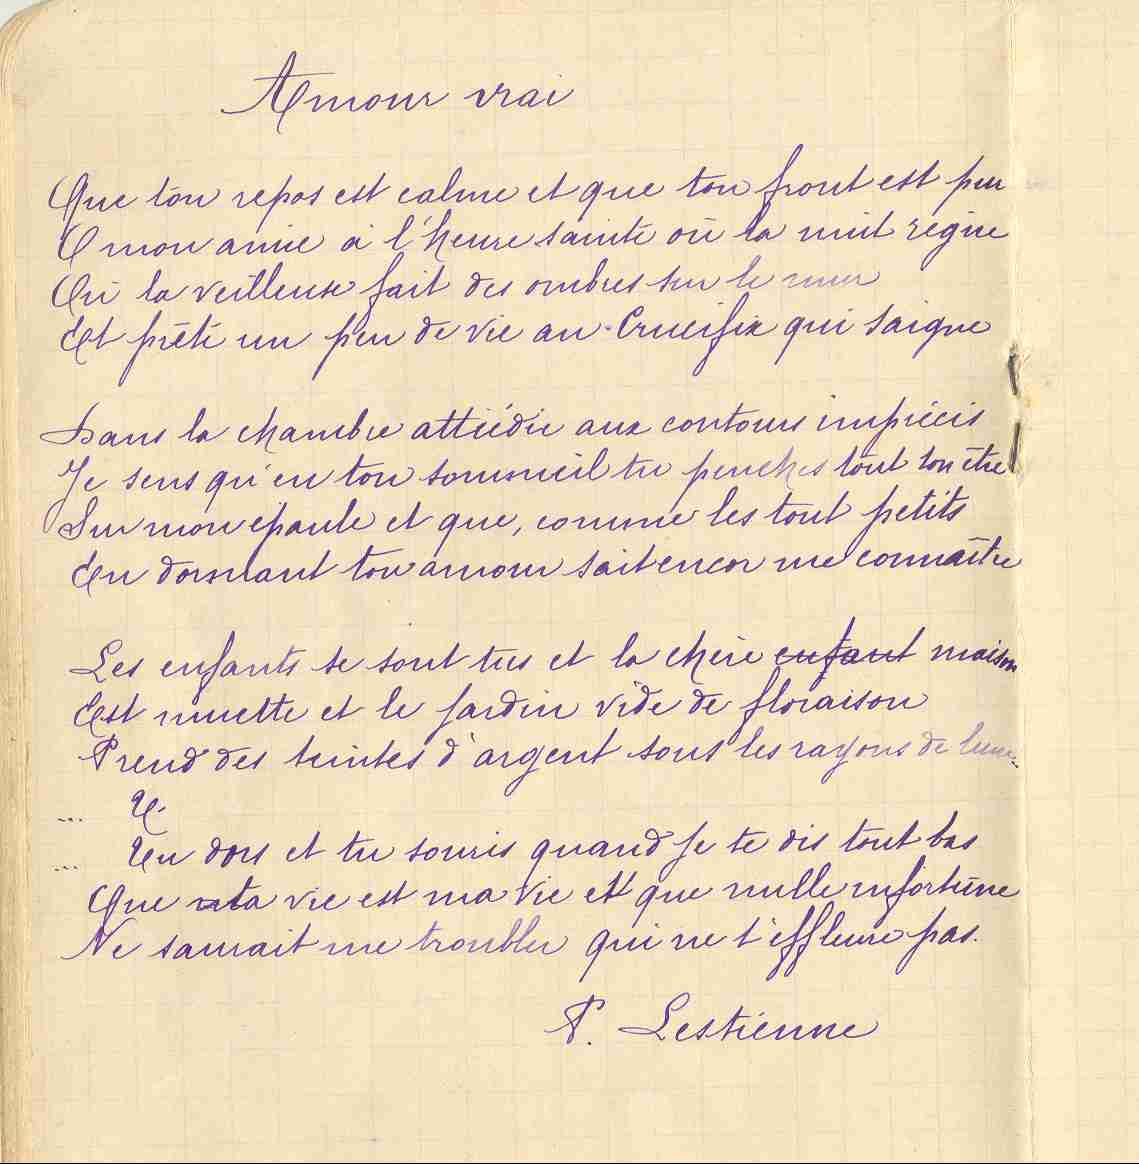 Amour vrai
Que ton repos est calme et que ton front est pur
O mon amie à l'heure sainte où la nuit règne
Où la veilleuse fait des ombres sur le mur
Et prête un peu de vie au Crucifix qui saigne
Dans la chambre attiédie aux contours imprécis
Je sens qu'en ton sommeil tu penches tout ton être
Sur mon épaule et que, comme les tout petits
En dormant ton amour sait encor me connaître
Les enfants se sont tus et la chère enfant maison
Est muette et le jardin vide de floraison
Prend des teintes d'argent sous les rayons de lune..
...
... Tu dors et tu souris quand je te dis tout bas
Que ta vie est ma vie et que nulle infortune
Ne saurait me troubler qui ne t'effleure pas.
P. Lestienne